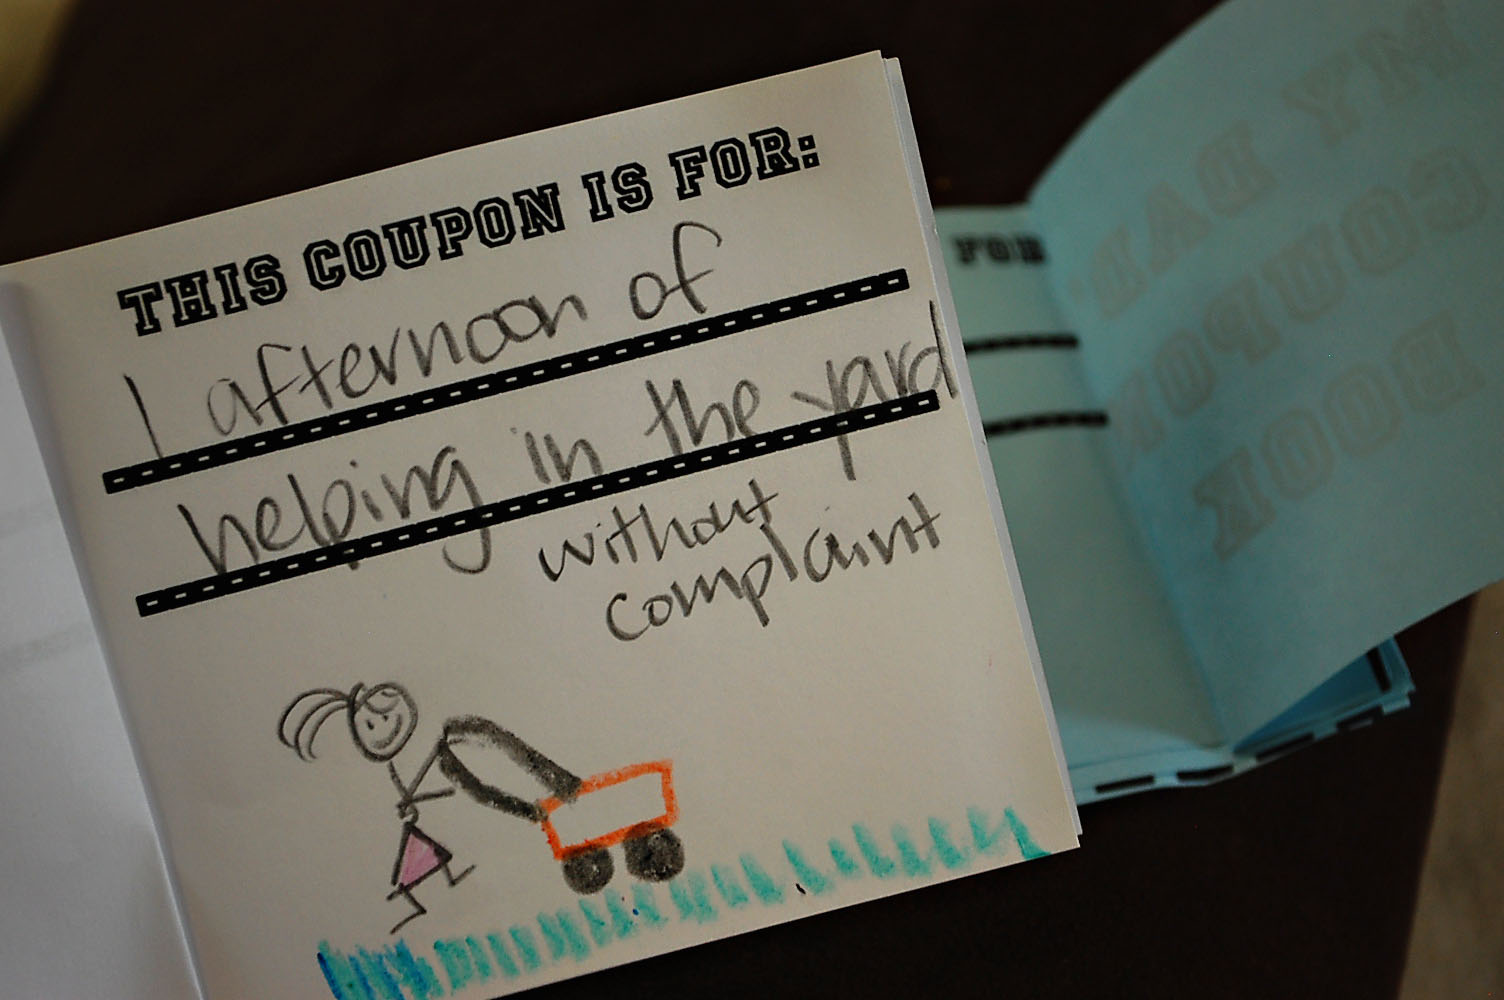 THIS COUPON IS FOR:
1 afternoon of
helping in the yard
without
complaint
FOR
MY DAD
COUPON
BOOK